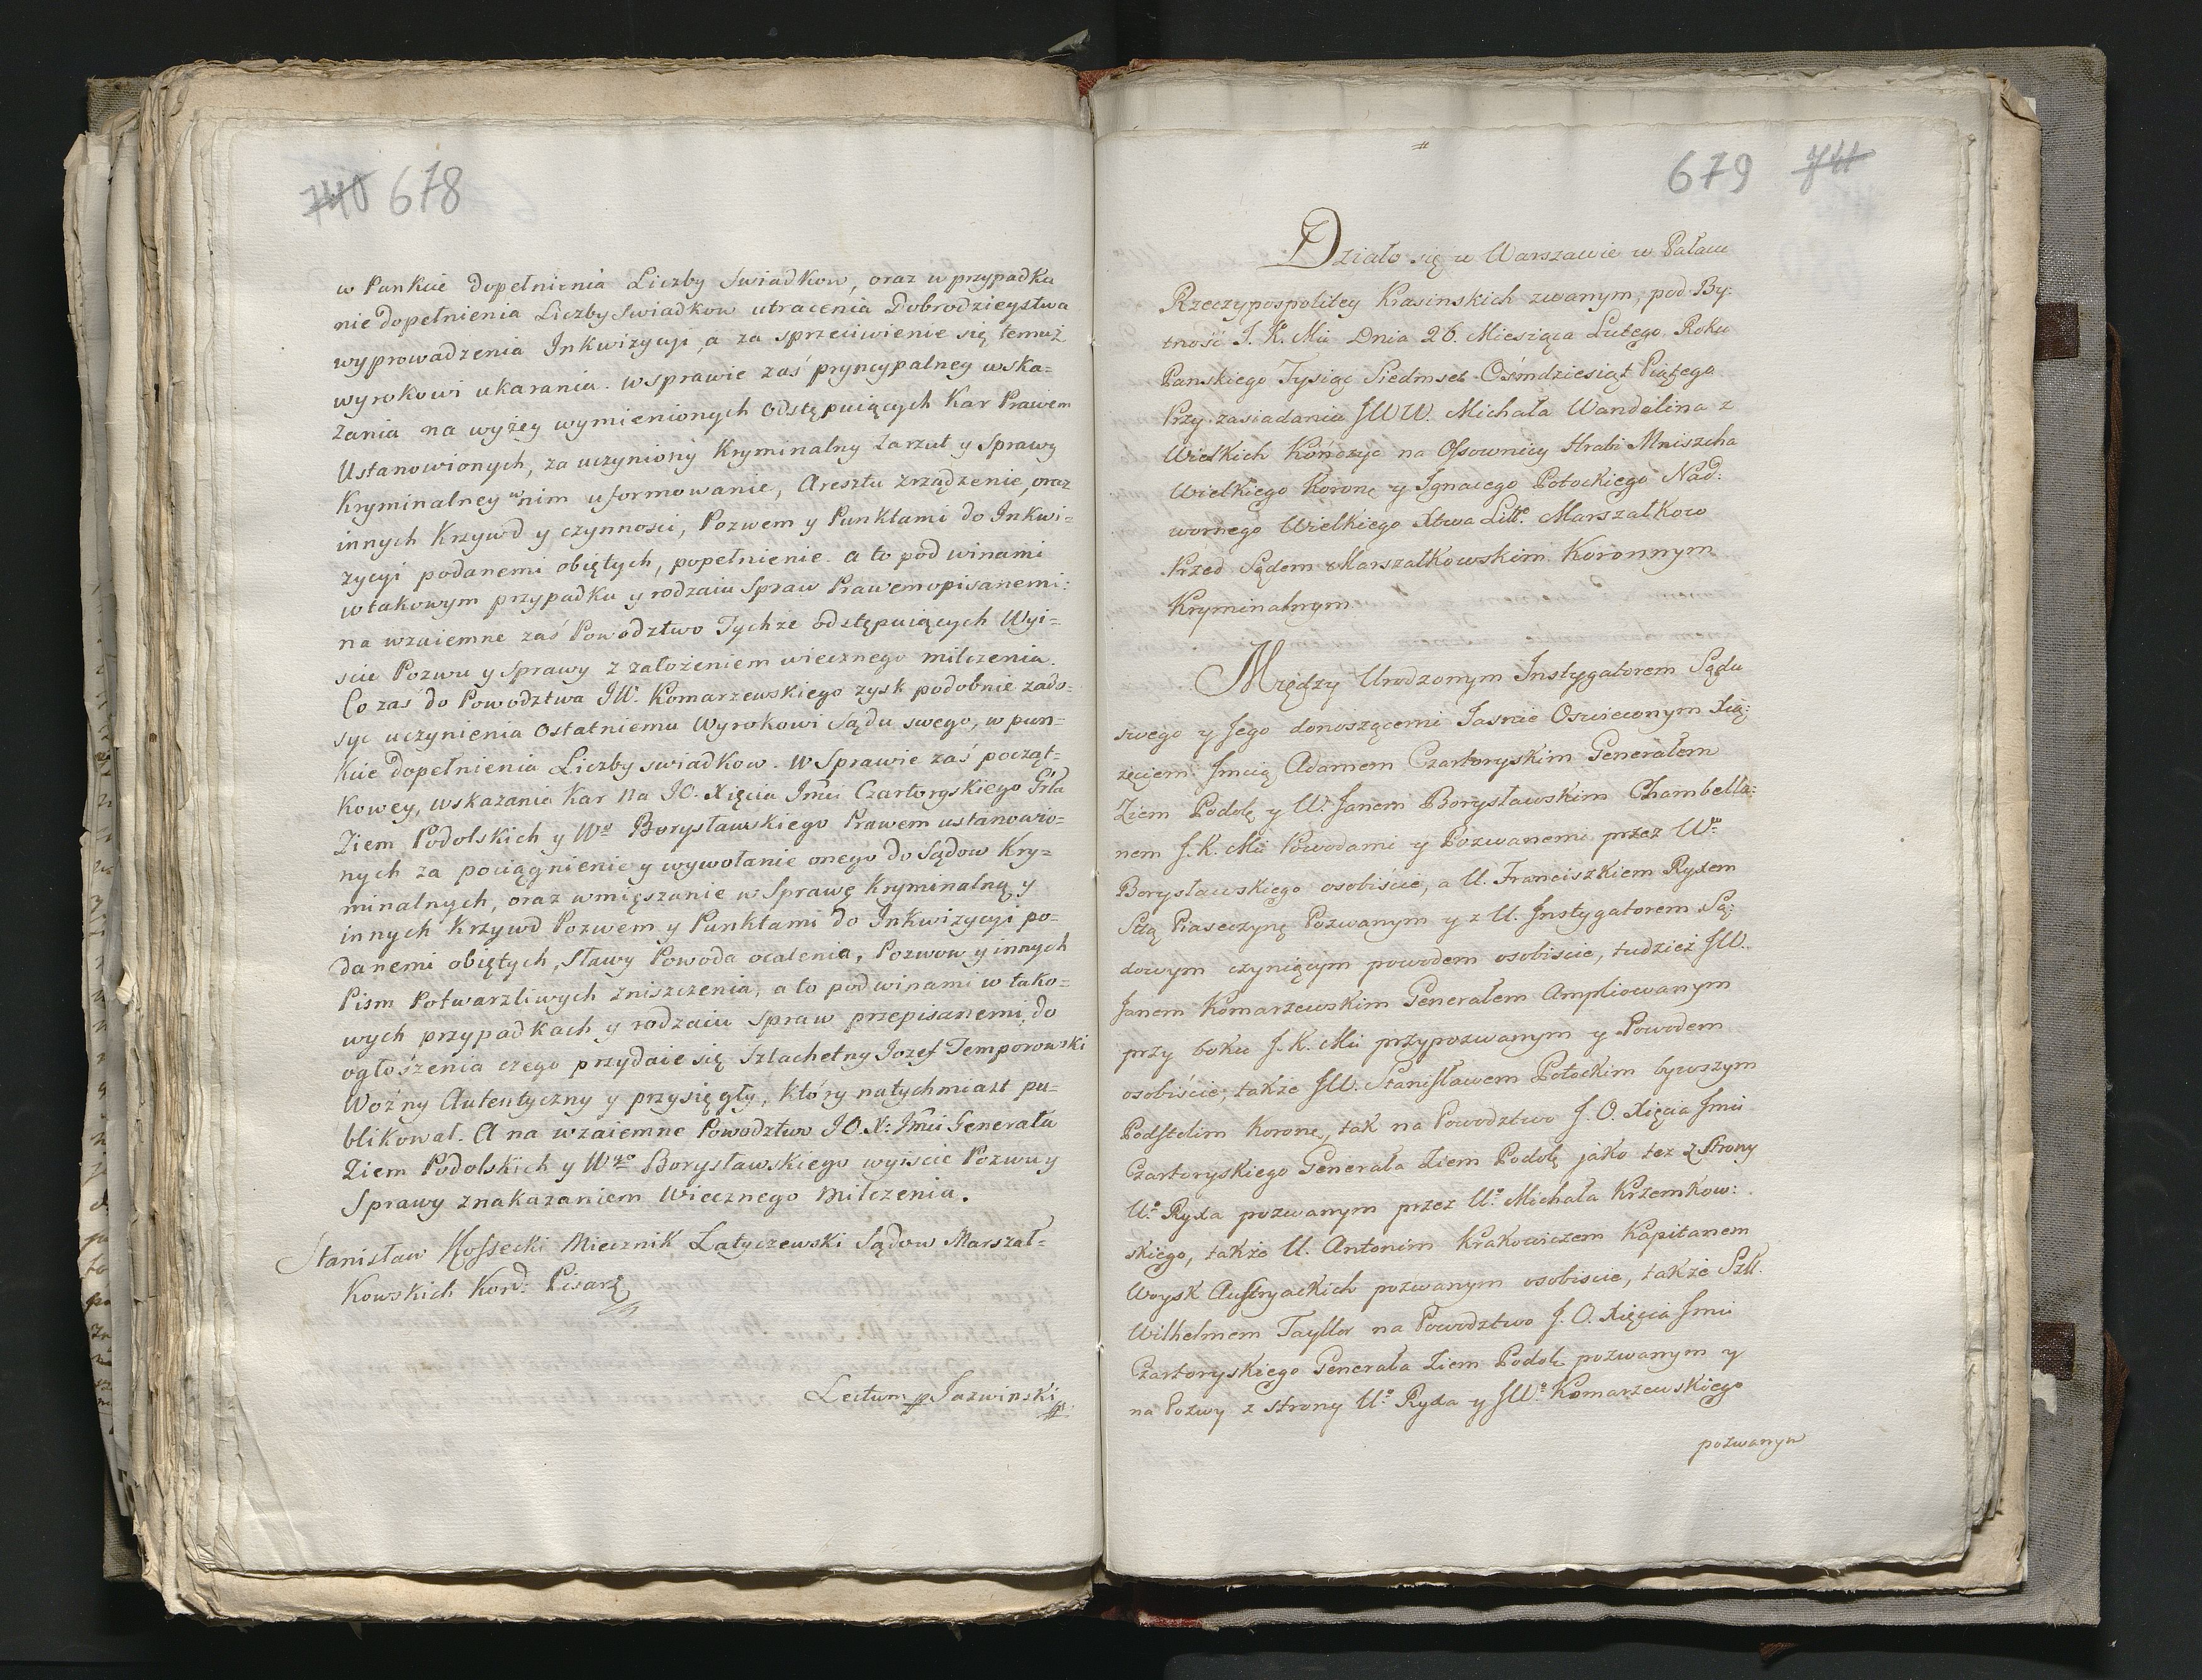 740 678
w Punkcie dopełnienia Liczby Swiadkow, oraz w przypadku
nie dopełnienia Liczby Swiadkow utracenia Dobrodzieystwa
wyprowadzenia Inkwizycyi, a za sprzeciwienie się temuż
wyrokowi ukarania. w sprawie zaś pryncypalney wska=
zania na wyżey wymienionych odstępuiących Kar Prawem
Ustanowionych, za uczyniony Kryminalny Zarzut y Sprawy
Kryminalney w nim uformowanie, Aresztu zrządzenie, oraz
innych Krzywd y czynnosci, Pozwem y Punktami do Inkwi=
zycyi podanemi obiętych, popełnienie. a to pod winami
w takowym przypadku y rodzaiu Spraw Prawem opisanemi:
na wzaiemne zaś Powodztwo Tychże odstępuiących Wyi=
scie Pozwu y Sprawy z załozeniem wiecznego milczenia.
Co zas do Powodztwa JW. Komarzewskiego zysk podobnie zado=
syc uczynienia ostatniemu Wyrokowi Sądu swego, w pun=
kcie dopełnienia Liczby swiadkow. w Sprawie zaś począt=
kowey, wskazania Kar na JO. Xięcia Jmci Czartoryskiego Grła
Ziem Podolskich y Wo Borysławskiego Prawem ustanowio=
nych za pociągnienie y wywołanie onego do Sądow Kry=
minalnych, oraz wmięszanie w Sprawę Kryminalną y
innych Krzywd Pozwem y Punktami do Inkwizycyi po=
danemi obiętych, Sławy Powoda ocalenia, Pozwow y innych
Pism Potwarzliwych zniszczenia, a to pod winami w tako=
wych przypadkach y rodzaiu Spraw przepisanemi, do
ogłoszenia czego przydaie się Szlachetny Jozef Temporowski
Woźny Autentyczny y przysięgły, który natychmiast pu=
blikował. A na wzaiemne Powodztwo JO. X: Jmci Generała
Ziem Podolskich y Wgo Borysławskiego wyiscie Pozwu y
Sprawy z nakazaniem Wiecznego Milczenia.
Stanisław Kossecki Miecznik Latyczewski Sądow Marszał=
kowskich Kord: Pisarz
Lectum p Jazwinski
679 741
Działo się w Warszawie w Pałacu
Rzeczypospolitey Krasinskich zwanym, pod By:
tność J. K. Mci Dnia 26. Miesiąca Lutego Roku
Panskiego Tysiąc Siedmset Ośmdziesiąt Piątego
Przy zasiadania JWW. Michała Wandalina z
Wielkich Kończyc na Ossownicy Hrabi Mniszcha
Wielkiego Koronę y Ignacego Potockiego Nad:
wornego Wielkiego Xtwa Litto. Marszałkow
Przed Sądem Marszałkowskim Koronnym
Kryminalnym.
Między Urodzonym Instygatorem Sądu
swego y Jego donoszącemi Jasnie Oswieconym Xią:
zęciem Jmcią Adamem Czartoryskim Generałem
Ziem Podolę y W. Janem Borysławskim Chambella:
nem J. K. Mci Powodami y Pozwanemi przez Wo
Borysławskiego osobiście, a U. Franciszkiem Ryxem
Sttą Piaseczynę Pozwanym y z U. Instygatorem Są:
dowym czyniącym powodem osobiscie, tudzież JW.
Janem Komarzewskim Generałem Ampliowanym
przy boku J. K. Mci przypozwanym y Powodem
osobiście; także JW. Stanisławem Potockim bywszym
Podstolim Koronę, tak na Powodztwo J. O. Xięcia Jmci
Czartoryskiego Generała Ziem Podolę jako tez z Strony
Uo Ryxa pozwanym przez Uo Michała Krzemkow:
skiego, także U. Antonim Krakowiczem Kapitanem
Woysk Austryackich pozwanym osobiscie, także Szll.
Wilhelmem Tayllor na Powodztwo J. O. Xięcia Jmci
Czartoryskiego Generała Ziem Podolę pozwanym y
na Pozwy z strony Uo Ryxa y JWo Komarzewskiego
pozwanym